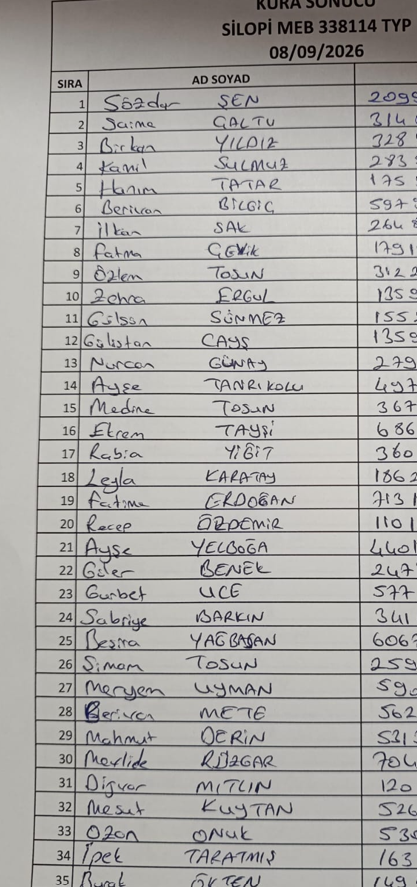 KURA SONUCU
SİLOPİ MEB 338114 TYP
08/09/2026
SIRA AD SOYAD
1 Sözdar ŞEN 2099
2 Saime GALTU 314
3 Birkan YILDIZ 328
4 Kamil SULMUZ 283
5 Hanım TATAR 175
6 Berivan BİLGİÇ 597
7 İlkan SAK 264
8 Fatma ÇEVİK 1791
9 Özlem TOSUN 312
10 Zehra ERGUL 1359
11 Gülsan SÖNMEZ 155
12 Gülistan ÇAYŞ 1359
13 Nurcan GÜNAY 279
14 Ayşe TANRIKOLU 497
15 Medine Tosun 367
16 Ekrem TAYŞİ 686
17 Rabia YİĞİT 360
18 Leyla KARATAY 1862
19 Fatima ERDOĞAN 7131
20 Recep ÖZDEMİR 1101
21 Ayşe YELBOĞA 4401
22 Güler BENEK 247
23 Gurbet UCE 577
24 Sabriye BARKIN 341
25 Beşira YAĞBAŞAN 606
26 Simam TOSUN 259
27 Meryem UYMAN 59
28 Berivan METE 562
29 Mahmut DERİN 531
30 Mevlide RÜZGAR 704
31 Dijvar MITLIN 120
32 Mesut KUYTAN 526
33 Ozan ONUK 530
34 İpek TARATMIŞ 163
35 Burak ÖKTEN 149